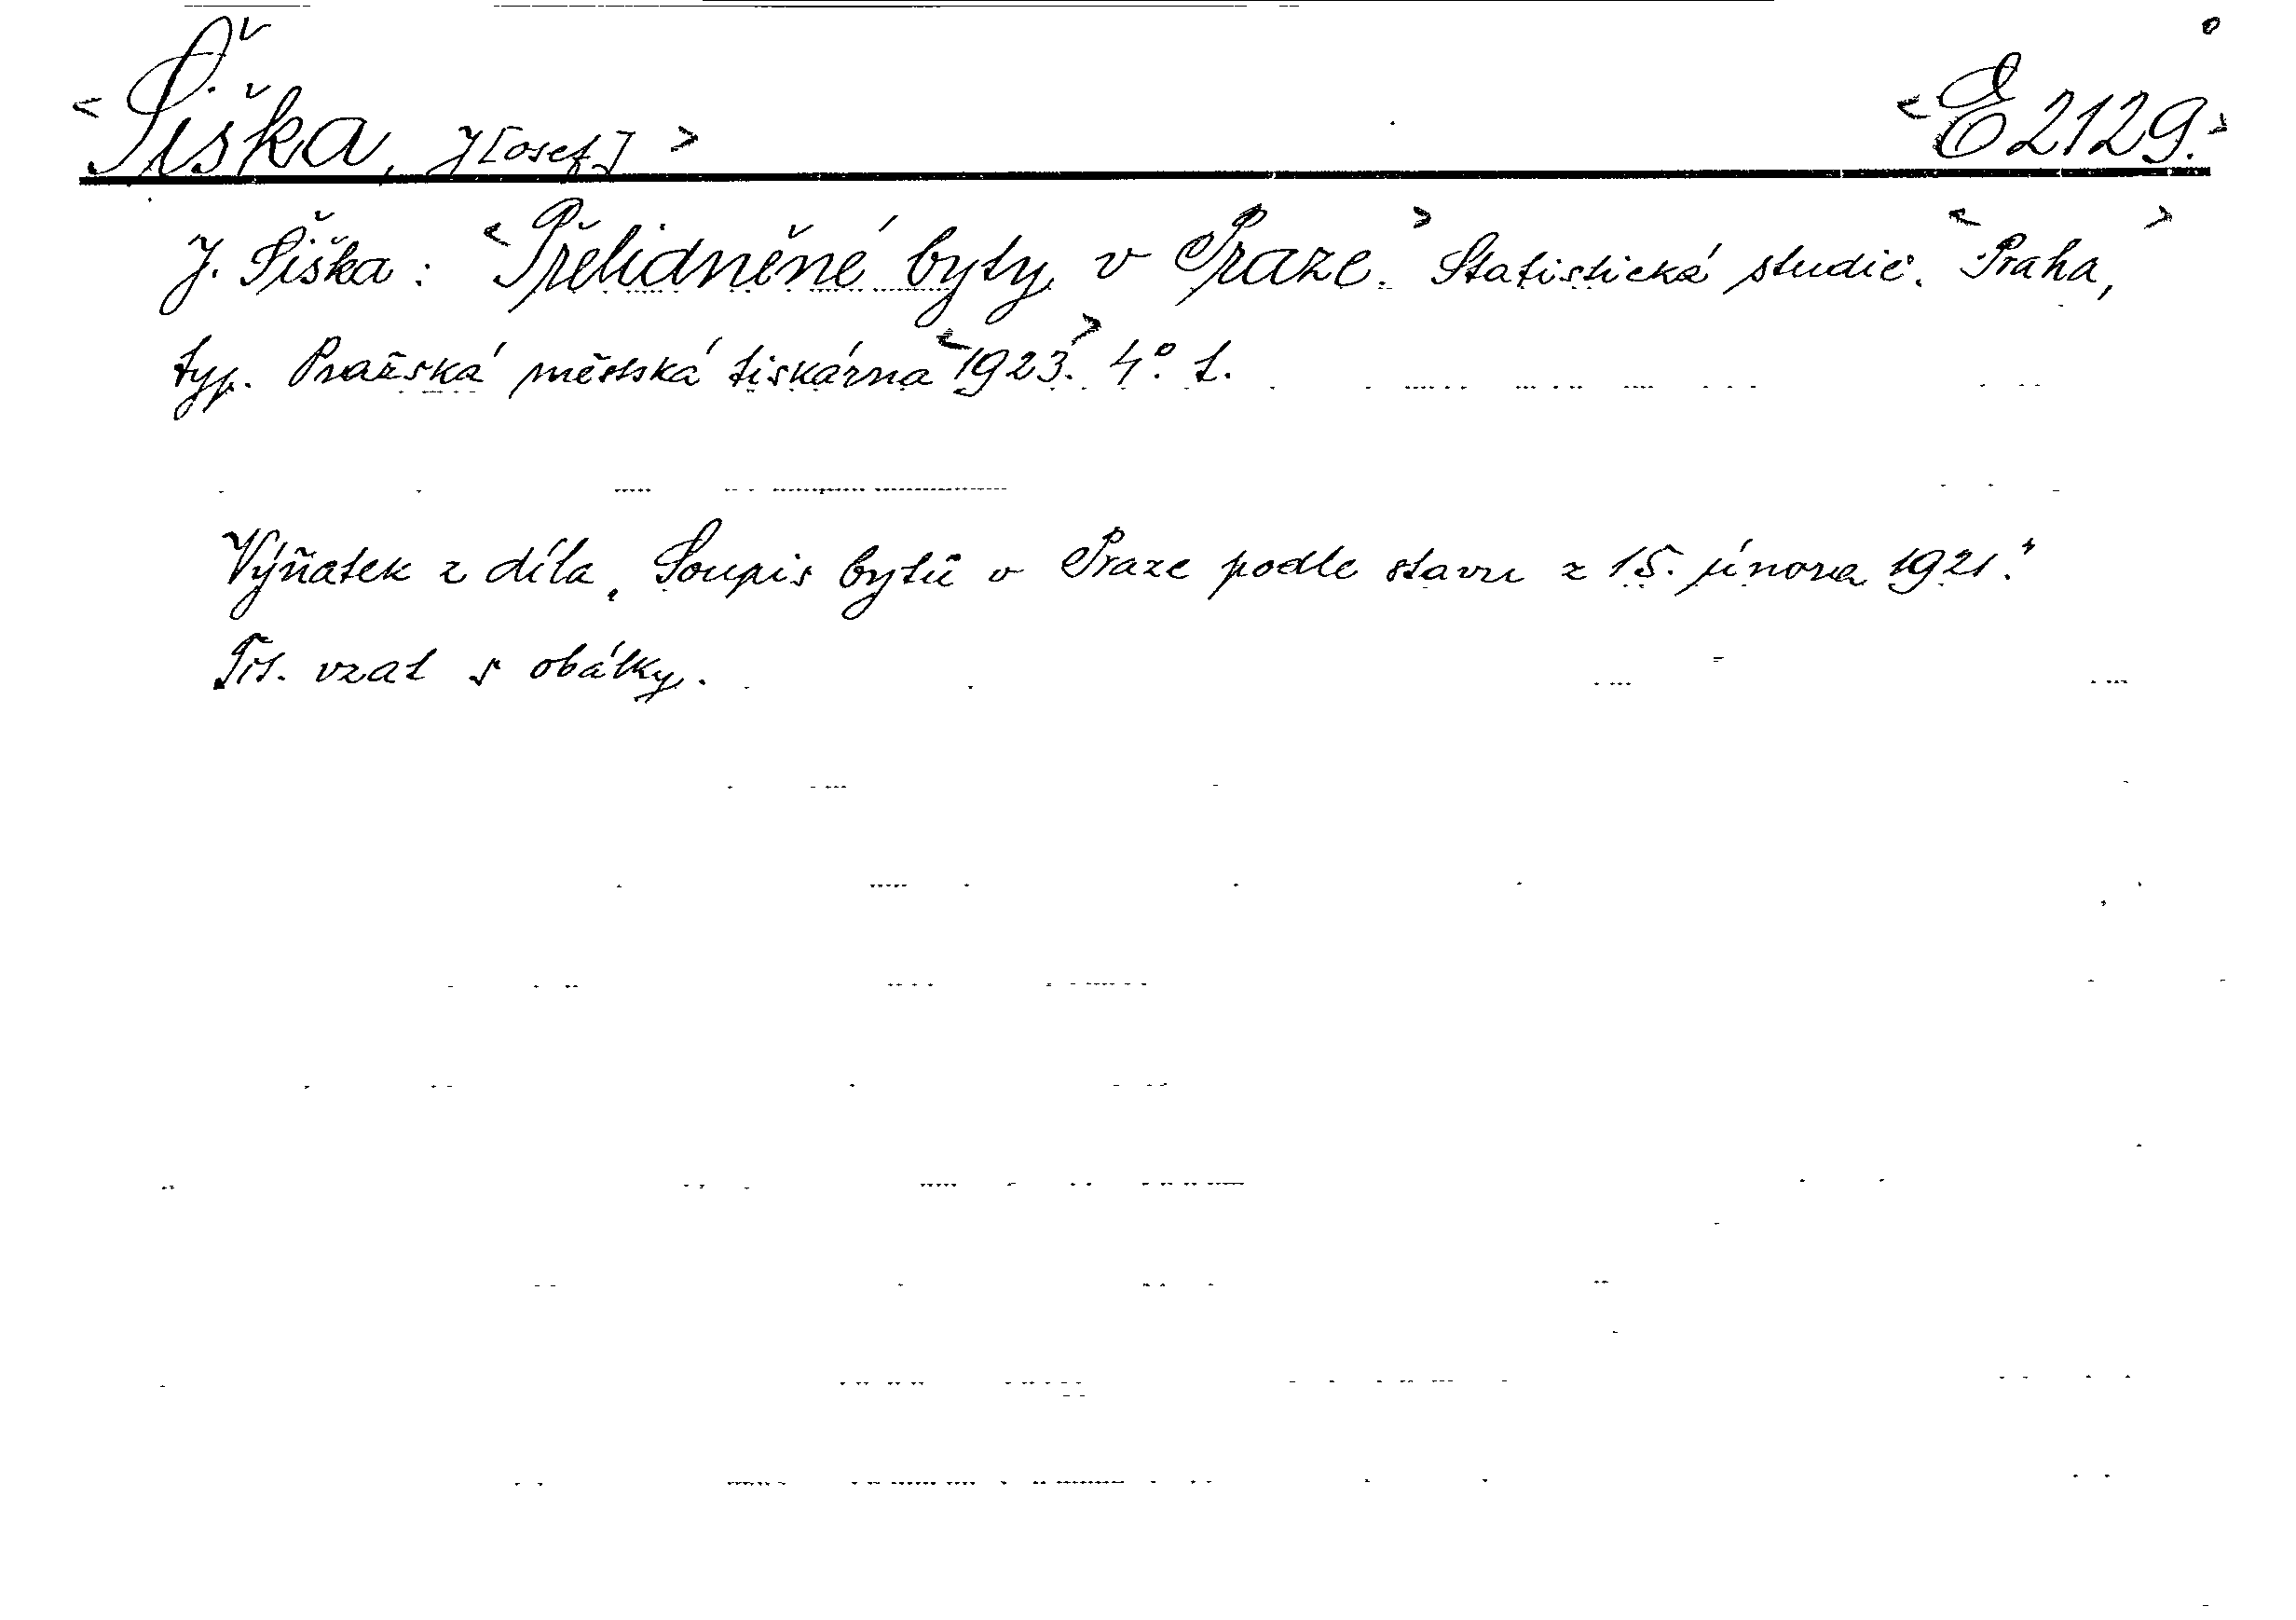 <Šiška, J[osef]> <E 2129.>
J. Šiška: <Přelidněné byty v Praze.> Statistická studie. <Praha,>
typ. Pražská městská tiskárna <1923.> 4°. 1.
Výňatek z díla „Soupis bytů v Praze podle stavu z 15. února 1921.“
Tit. vzat s obálky.